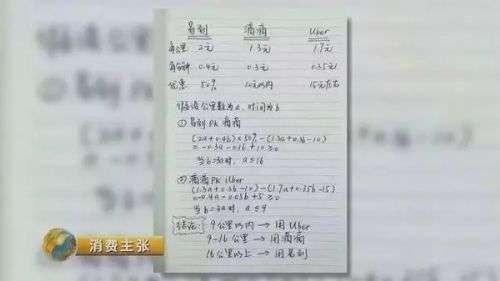 易到 滴滴 Uber
每公里 2元 1.3元 1.7元
每分钟 0.4元 0.3元 0.35元
优惠 50% 10元以内 15元左右
假设公里数为a,时间为b
① 易到PK滴滴
(2a+0.4b)×50%-(1.3a+0.3b-10)
=-0.3a-0.1b+10≥0
当b=30时,a≤16
② 滴滴PK Uber
(1.3a+0.3b-10)-(1.7a+0.35b-15)
=-0.4a-0.05b+5≥0
当b=30时,a≤9
结论: 9公里以内→用Uber
9-16公里→用滴滴
16公里以上→用易到
消费主张